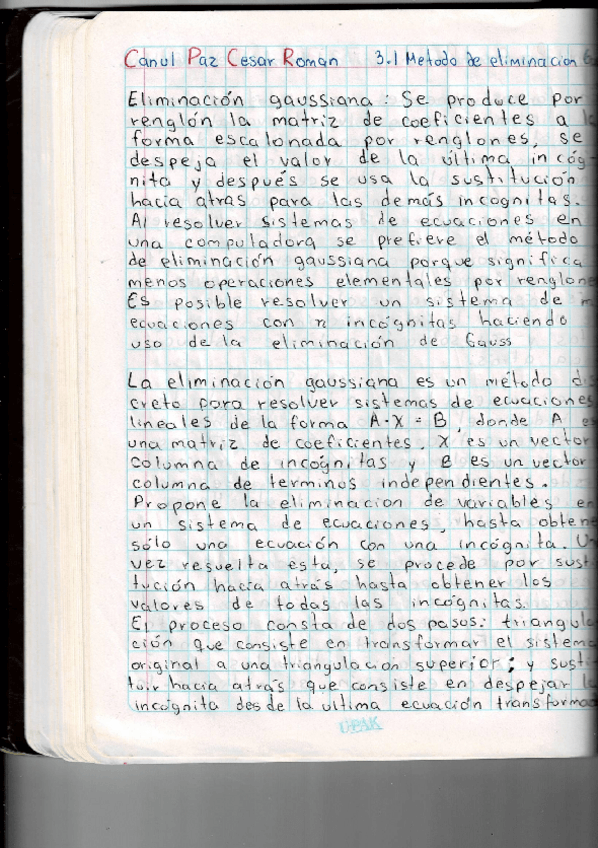 Canul Paz Cesar Roman 3.1 Metodo de eliminacion
Eliminación gaussiana: Se produce por
renglón la matriz de coeficientes a la
forma escalonada por renglones, se
despeja el valor de la última incóg-
nita y después se usa la sustitución
hacia atras para las demás incognitas.
Al resolver sistemas de ecuaciones en
una compuladora se prefiere el método
de eliminación gaussiana porque significa
menos operaciones elementales por renglone
Es posible resolver un sistema de m
ecuaciones con n incógnitas haciendo
uso de la eliminación de Gauss
La eliminación gaussiana es un método dis
creto para resolver sistemas de ecuaciones
lineales de la forma A·X = B, donde A es
una matriz de coeficientes, X es un vector
columna de incógnitas y B es un vector
columna de terminos independientes.
Propone la eliminacion de variables en
un sistema de ecuaciones, hasta obtene
sólo una ecuación con una incógnita. Un
vez resuelta esta, se procede por susti
tución hacia atrás hasta obtener los
valores de todas las incógnitas.
El proceso consta de dos pasos: triangula
ción que consiste en transformar el sistema
original a una triangulación superior; y susti
tuir hacia atrás que consiste en despejar la
incógnita desde la ultima ecuación transformad